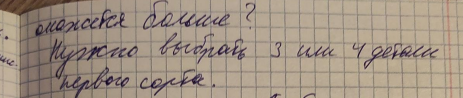 окажется больше?
Нужно выбрать 3 или 4 детали
первого сорта.